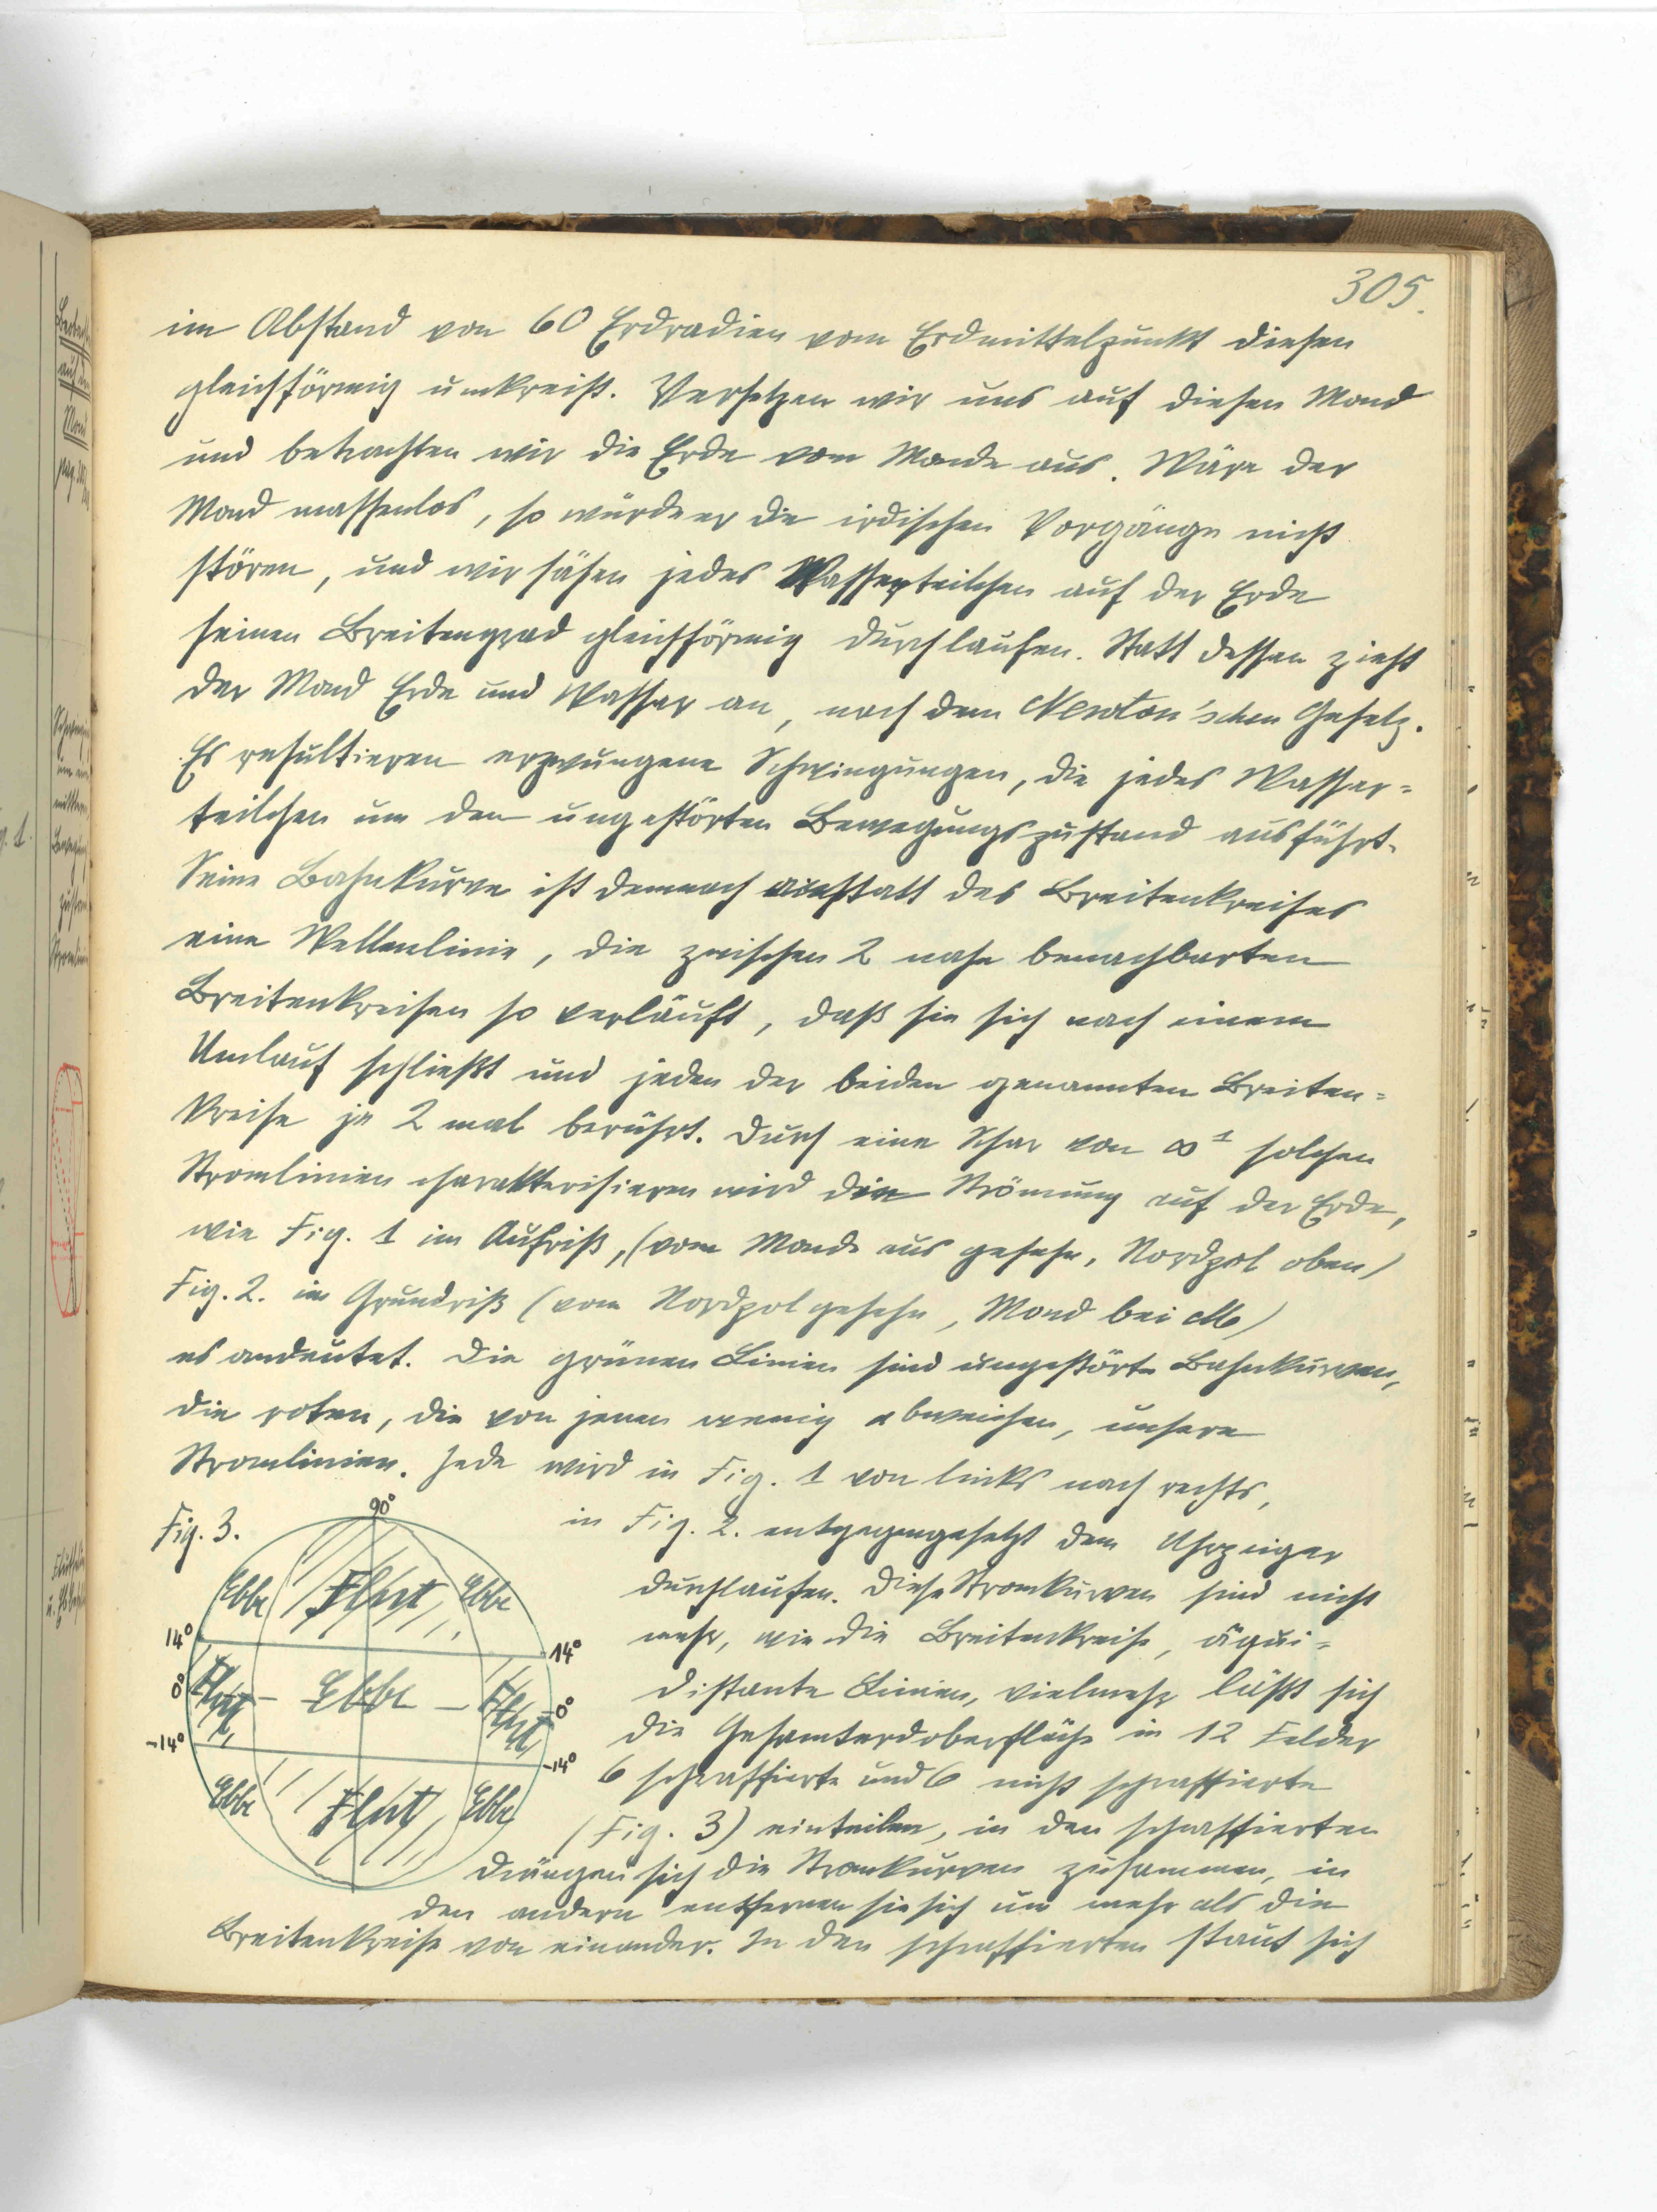 305.
im Abstand von 60 Erdradien vom Erdmittelpunkt diesen
gleichförmig umkreist. Versetzen wir uns auf diesen Mond
und betrachten wir die Erde vom Monde aus. Wäre der
Mond massenlos, so würde er die irdischen Vorgänge nicht
stören, und wir sähen jedes Wasserteilchen auf der Erde
seinen Breitengrad gleichförmig durchlaufen. Statt dessen zieht
der Mond Erde und Wasser an, nach dem Newton'schen Gesetz.
Es resultieren erzwungene Schwingungen, die jedes Wasser=
teilchen um den ungestörten Bewegungszustand ausführt.
Seine Bahnkurve ist demnach anstatt des Breitenkreises
eine Wellenlinie, die zwischen 2 nahe benachbarten
Breitenkreisen so verläuft, daß sie sich nach einem
Umlauf schließt und jeden der beiden genannten Breiten=
kreise je 2 mal berührt. Durch eine Schar von ∞¹ solchen
Stromlinien charakterisieren wird die Strömung auf der Erde,
wie Fig. 1 im Aufriß, (vom Monde aus gesehn, Nordpol oben)
Fig. 2. im Grundriß (vom Nordpol gesehn, Mond bei M)
es andeutet. Die grünen Linien sind ungestörte Bahnkurven,
die roten, die von jenen wenig abweichen, unsere
Stromlinien. Jede wird in Fig. 1 von links nach rechts,
in Fig. 2. entgegengesetzt dem Uhrzeiger
durchlaufen. Diese Stromkurven sind nicht
mehr, wie die Breitenkreise, äqui=
distante Linien, vielmehr läßt sich
die Gesamterdoberfläche in 12 Felder
6 schraffierte und 6 nicht schraffierte
(Fig. 3) einteilen, in den schraffierten
drängen sich die Stromkurven zusammen, in
den andern entfernen sie sich um mehr als die
Breitenkreise von einander. In den schraffierten staut sich
Fig. 3.
90°
Ebbe Flut Ebbe
14° 14°
0° Flut - Ebbe - Flut 0°
-14° -14°
Ebbe Flut Ebbe